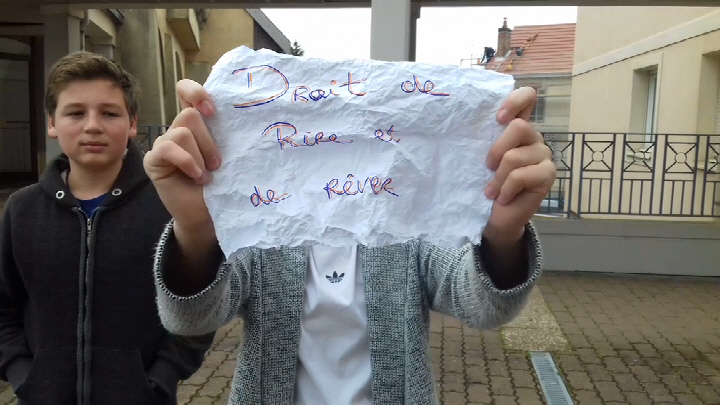 Droit de
Rire et
de rêver